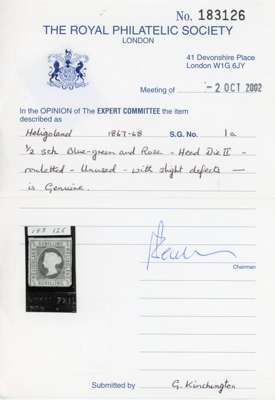 No. 183126
THE ROYAL PHILATELIC SOCIETY
LONDON
41 Devonshire Place
London W1G 6JY
Meeting of - 2 OCT 2002
In the OPINION of The EXPERT COMMITTEE the item
described as
Heligoland 1867-68 S.G. No. 1a
½ sch Blue-green and Rose - Head Die II -
rouletted - Unused - with slight defects -
is Genuine.
183 126
Chairman
Submitted by G. Kinchington